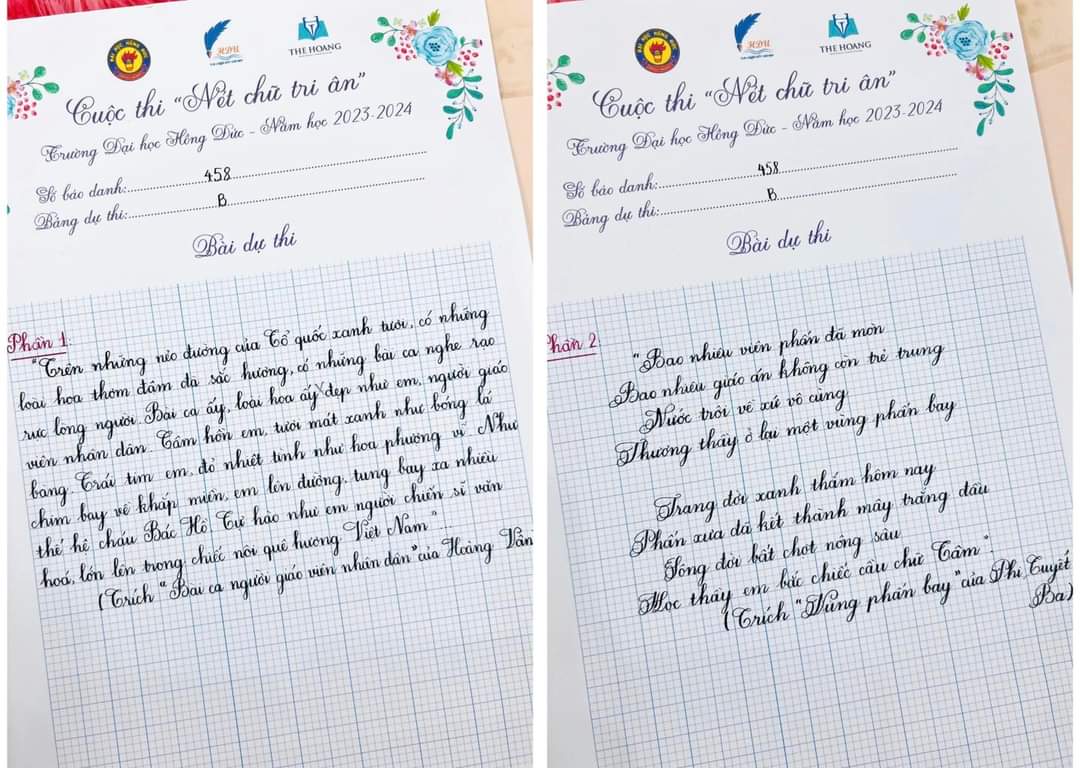 ĐẠI HỌC HỒNG ĐỨC
HDU
THE HOANG
Cuộc thi “Nét chữ tri ân”
Trường Đại học Hồng Đức - Năm học 2023-2024
Số báo danh:.....458.....
Bảng dự thi:.....B.....
Bài dự thi
Phần 1:
“Trên những nẻo đường của Tổ quốc xanh tươi, có những
loài hoa thơm đậm đà sắc hương, có những bài ca nghe rạo
rực lòng người. Bài ca ấy, loài hoa ấy đẹp như em, người giáo
viên nhân dân. Tâm hồn em, tươi mát xanh như bóng lá
bàng. Trái tim em, đỏ nhiệt tình như hoa phượng vĩ. Như
chim bay về khắp miền, em lên đường, tung bay xa nhiều
thế hệ cháu Bác Hồ. Tự hào như em người chiến sĩ văn
hoá, lớn lên trong chiếc nôi quê hương Việt Nam”...
(Trích “Bài ca người giáo viên nhân dân” của Hoàng Vân
ĐẠI HỌC HỒNG ĐỨC
HDU
THE HOANG
Cuộc thi “Nét chữ tri ân”
Trường Đại học Hồng Đức - Năm học 2023-2024
Số báo danh:.....458.....
Bảng dự thi:.....B.....
Bài dự thi
Phần 2
“Bao nhiêu viên phấn đã mòn
Bao nhiêu giáo án không còn trẻ trung
Nước trôi về xứ vô cùng
Thương thầy ở lại một vùng phấn bay
Trang đời xanh thắm hôm nay
Phấn xưa đã kết thành mây trắng đầu
Sông đời bất chợt nông sâu
Học thầy em bắc chiếc cầu chữ Tâm”.
(Trích “Vùng phấn bay” của Phi Tuyết
Ba)